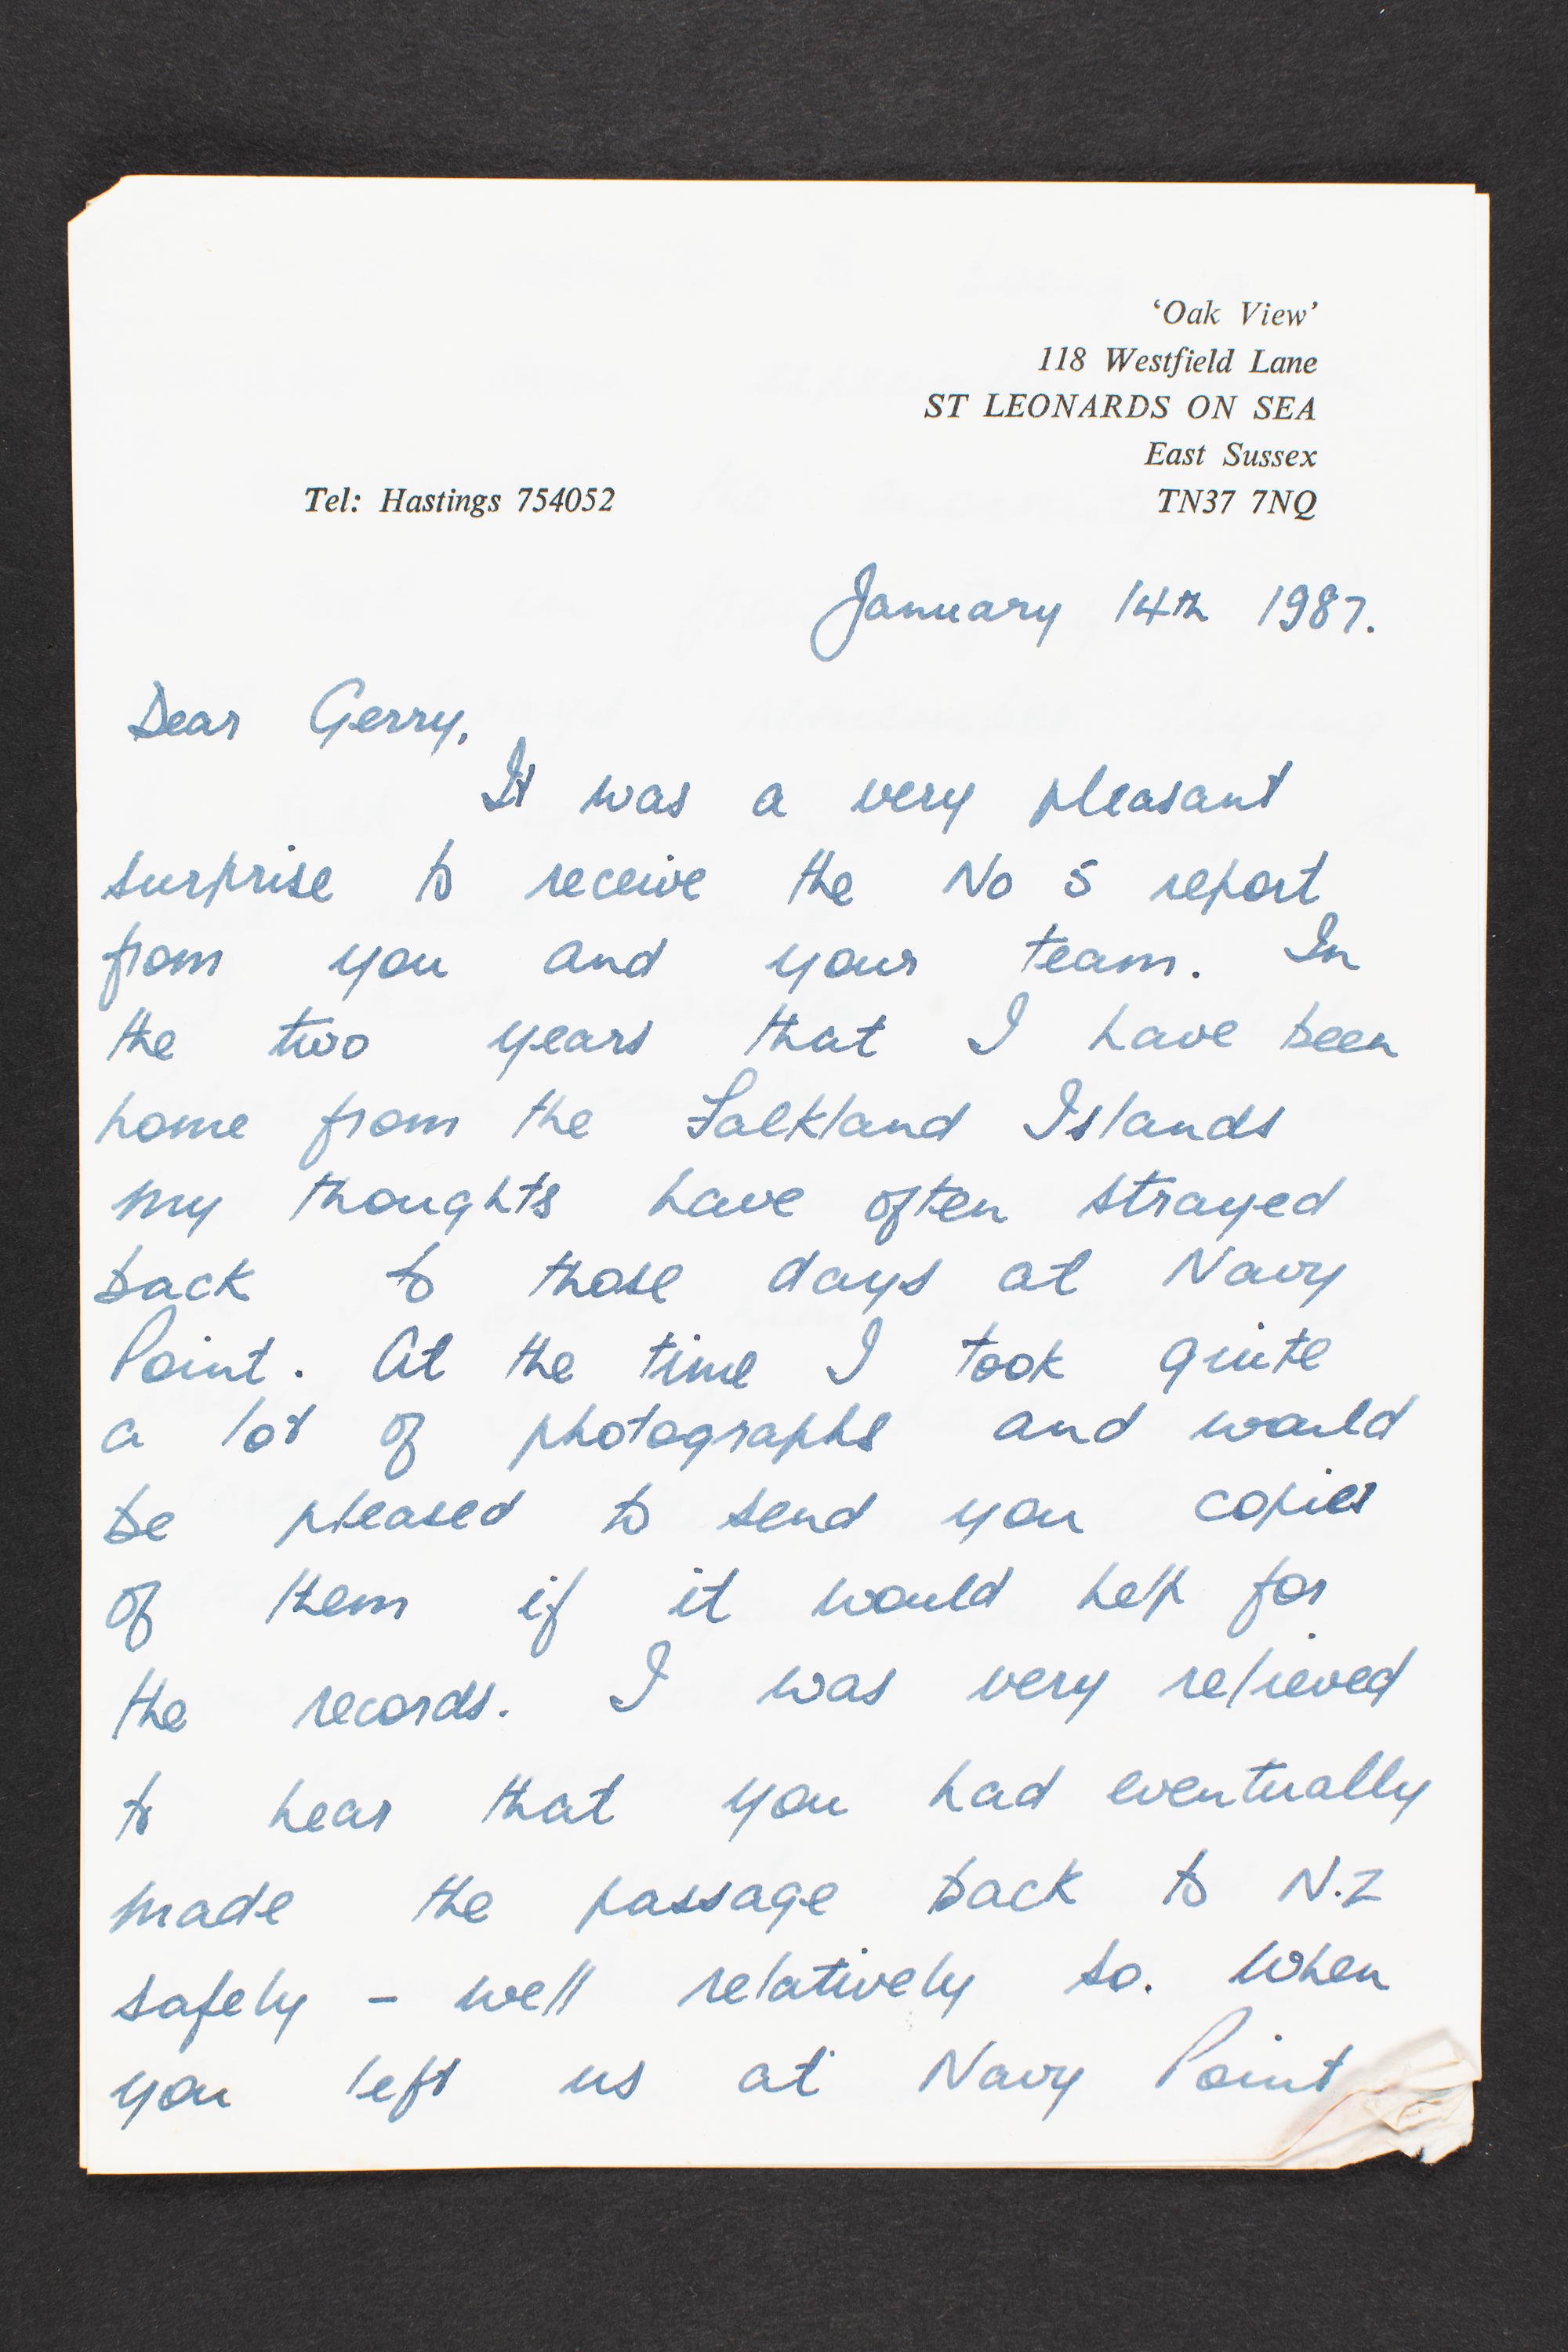 'Oak View'
118 Westfield Lane
ST LEONARDS ON SEA
East Sussex
Tel: Hastings 754052 TN37 7NQ
January 14th 1987.
Dear Gerry,
It was a very pleasant
surprise to receive the No 5 report
from you and your team. In
the two years that I have been
home from the Falkland Islands
my thoughts have often strayed
back to those days at Navy
Point. At the time I took quite
a lot of photographs and would
be pleased to send you copies
of them if it would help for
the records. I was very relieved
to hear that you had eventually
made the passage back to N.Z
safely - well relatively so. When
you left us at Navy Point